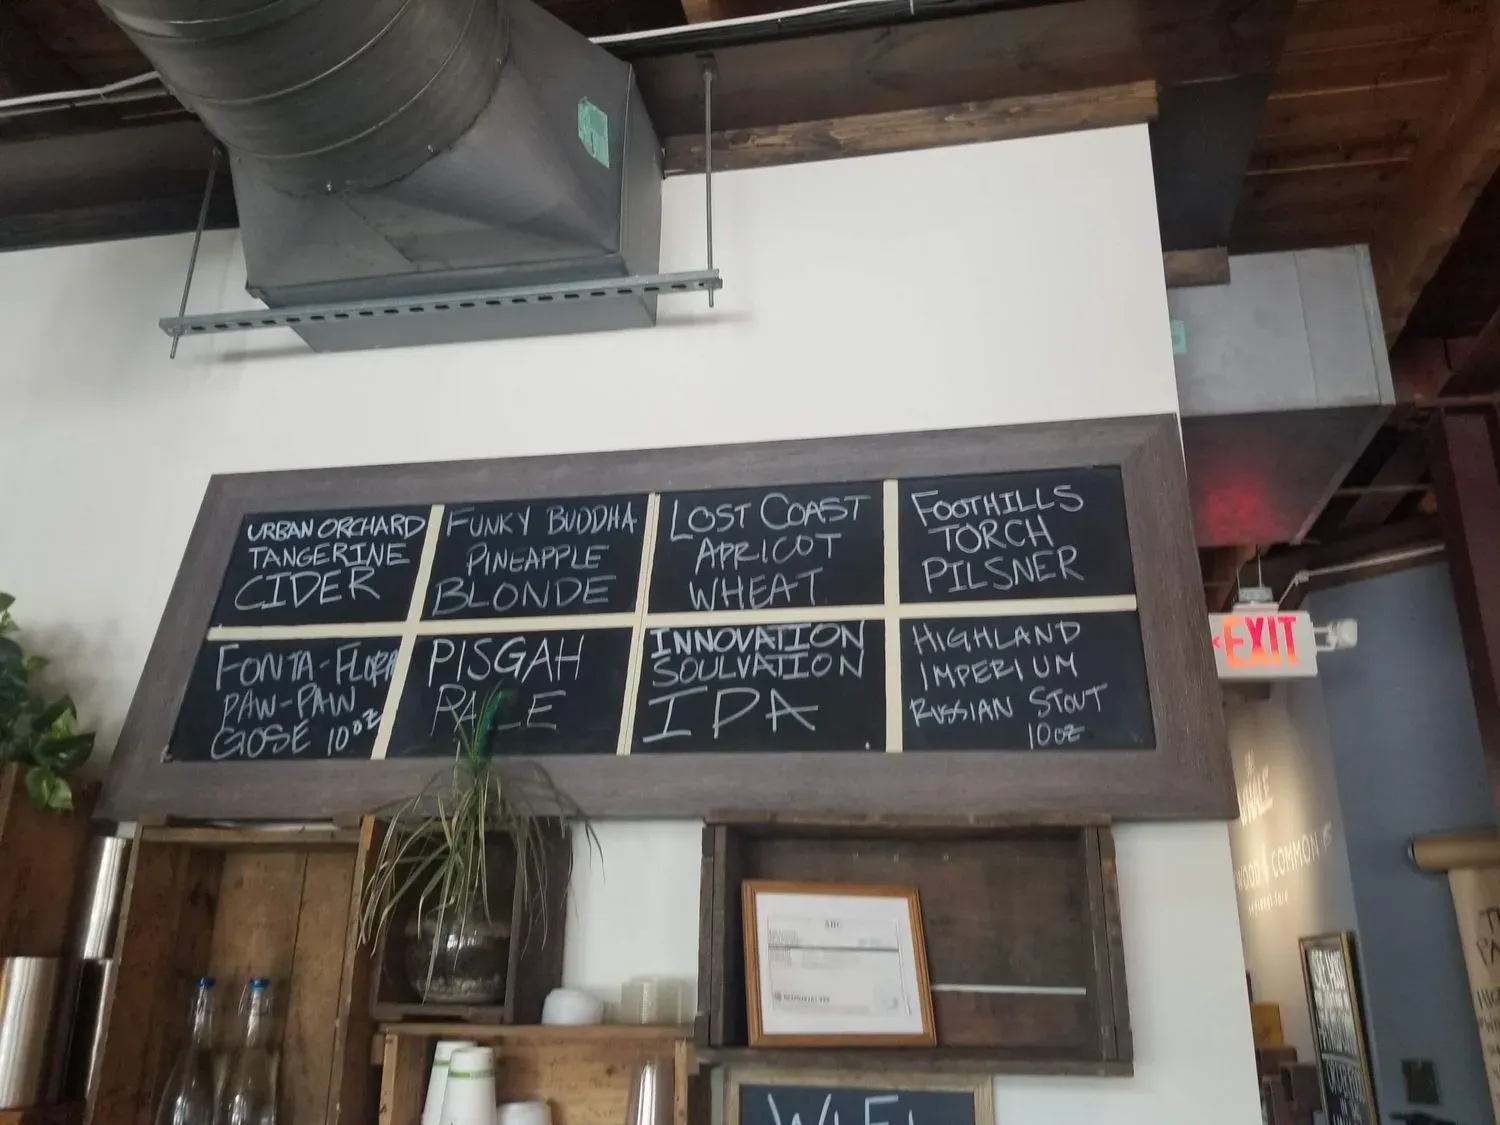 URBAN ORCHARD
TANGERINE
CIDER
FUNKY BUDDHA
PINEAPPLE
BLONDE
LOST COAST
APRICOT
WHEAT
FOOTHILLS
TORCH
PILSNER
FONTA-FLORA
PAW-PAW
GOSE 10oz
PISGAH
PALE
INNOVATION
SOULVATION
IPA
HIGHLAND
IMPERIUM
RUSSIAN STOUT
10oz
EXIT
COMMON
WIFI